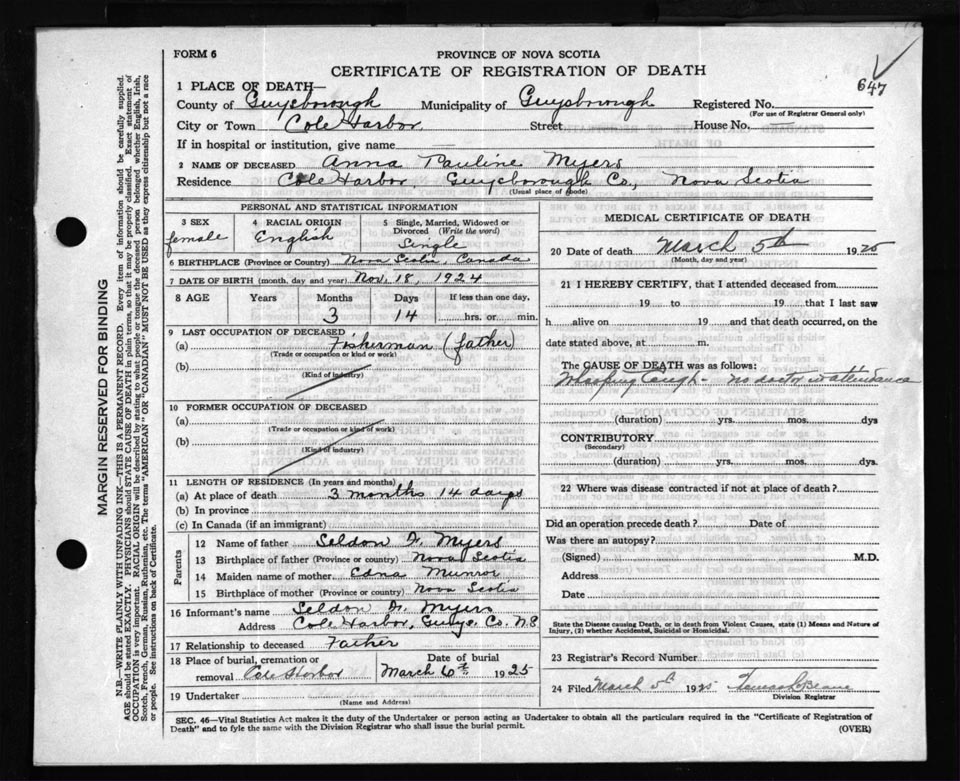 FORM 6
PROVINCE OF NOVA SCOTIA
CERTIFICATE OF REGISTRATION OF DEATH
647
1 PLACE OF DEATH—
County of Guysborough Municipality of Guysborough Registered No.
(For use of Registrar General only)
City or Town Cole Harbor Street House No. —
If in hospital or institution, give name
2 NAME OF DECEASED Anna Pauline Myers
Residence Cole Harbor Guysborough Co, Nova Scotia
(Usual place of abode)
PERSONAL AND STATISTICAL INFORMATION
3 SEX female
4 RACIAL ORIGIN English
5 Single, Married, Widowed or Divorced (Write the word) Single
6 BIRTHPLACE (Province or Country) Nova Scotia, Canada
7 DATE OF BIRTH (month, day and year) Nov, 18, 1924
8 AGE Years Months Days If less than one day,
3 14 hrs. or min.
9 LAST OCCUPATION OF DECEASED
(a) Fisherman (father)
(Trade or occupation or kind or work)
(b)
(Kind of industry)
10 FORMER OCCUPATION OF DECEASED
(a)
(Trade or occupation or kind of work)
(b)
(Kind of industry)
11 LENGTH OF RESIDENCE (In years and months)
(a) At place of death 3 months 14 days
(b) In province
(c) In Canada (if an immigrant)
Parents
12 Name of father Seldon F. Myers
13 Birthplace of father (Province or country) Nova Scotia
14 Maiden name of mother Edna Munroe
15 Birthplace of mother (Province or country) Nova Scotia
16 Informant's name Seldon F. Myers
Address Cole Harbor, Guys. Co. N.S
17 Relationship to deceased Father
18 Place of burial, cremation or removal Cole Harbor Date of burial March 6th 1925
19 Undertaker
(Name and Address)
MEDICAL CERTIFICATE OF DEATH
20 Date of death March 5th 1925
(Month, day and year)
21 I HEREBY CERTIFY, that I attended deceased from
19 to 19 that I last saw
h alive on 19 and that death occurred, on
date stated above, at m.
The CAUSE OF DEATH was as follows:
Whooping Cough - no doctor in attendance
(duration) yrs. mos. dys
CONTRIBUTORY
(Secondary)
(duration) yrs. mos. dys.
22 Where was disease contracted if not at place of death?
Did an operation precede death? Date of
Was there an autopsy?
(Signed) M.D.
Address
Date
State the Disease causing Death, or in death from Violent Causes, state (1) Means and Nature of
Injury, (2) whether Accidental, Suicidal or Homicidal.
23 Registrar's Record Number
24 Filed March 5th 1925
Division Registrar
SEC. 46—Vital Statistics Act makes it the duty of the Undertaker or person acting as Undertaker to obtain all the particulars required in the "Certificate of Registration of
Death" and to fyle the same with the Division Registrar who shall issue the burial permit.
(OVER)
MARGIN RESERVED FOR BINDING
N.B.—WRITE PLAINLY WITH UNFADING INK—THIS IS A PERMANENT RECORD. Every item of information should be carefully supplied.
AGE should be stated EXACTLY. PHYSICIANS should STATE CAUSE OF DEATH in plain terms, so that it may be properly classified. Exact statement of
OCCUPATION is very important. RACIAL ORIGIN will be described by stating to what people or tongue the deceased person belonged whether English, Irish,
Scotch, French, German, Russian, Ruthenian, etc. The terms "AMERICAN" OR "CANADIAN" MUST NOT BE USED as they express citizenship but not a race
or people. See instructions on back of Certificate.